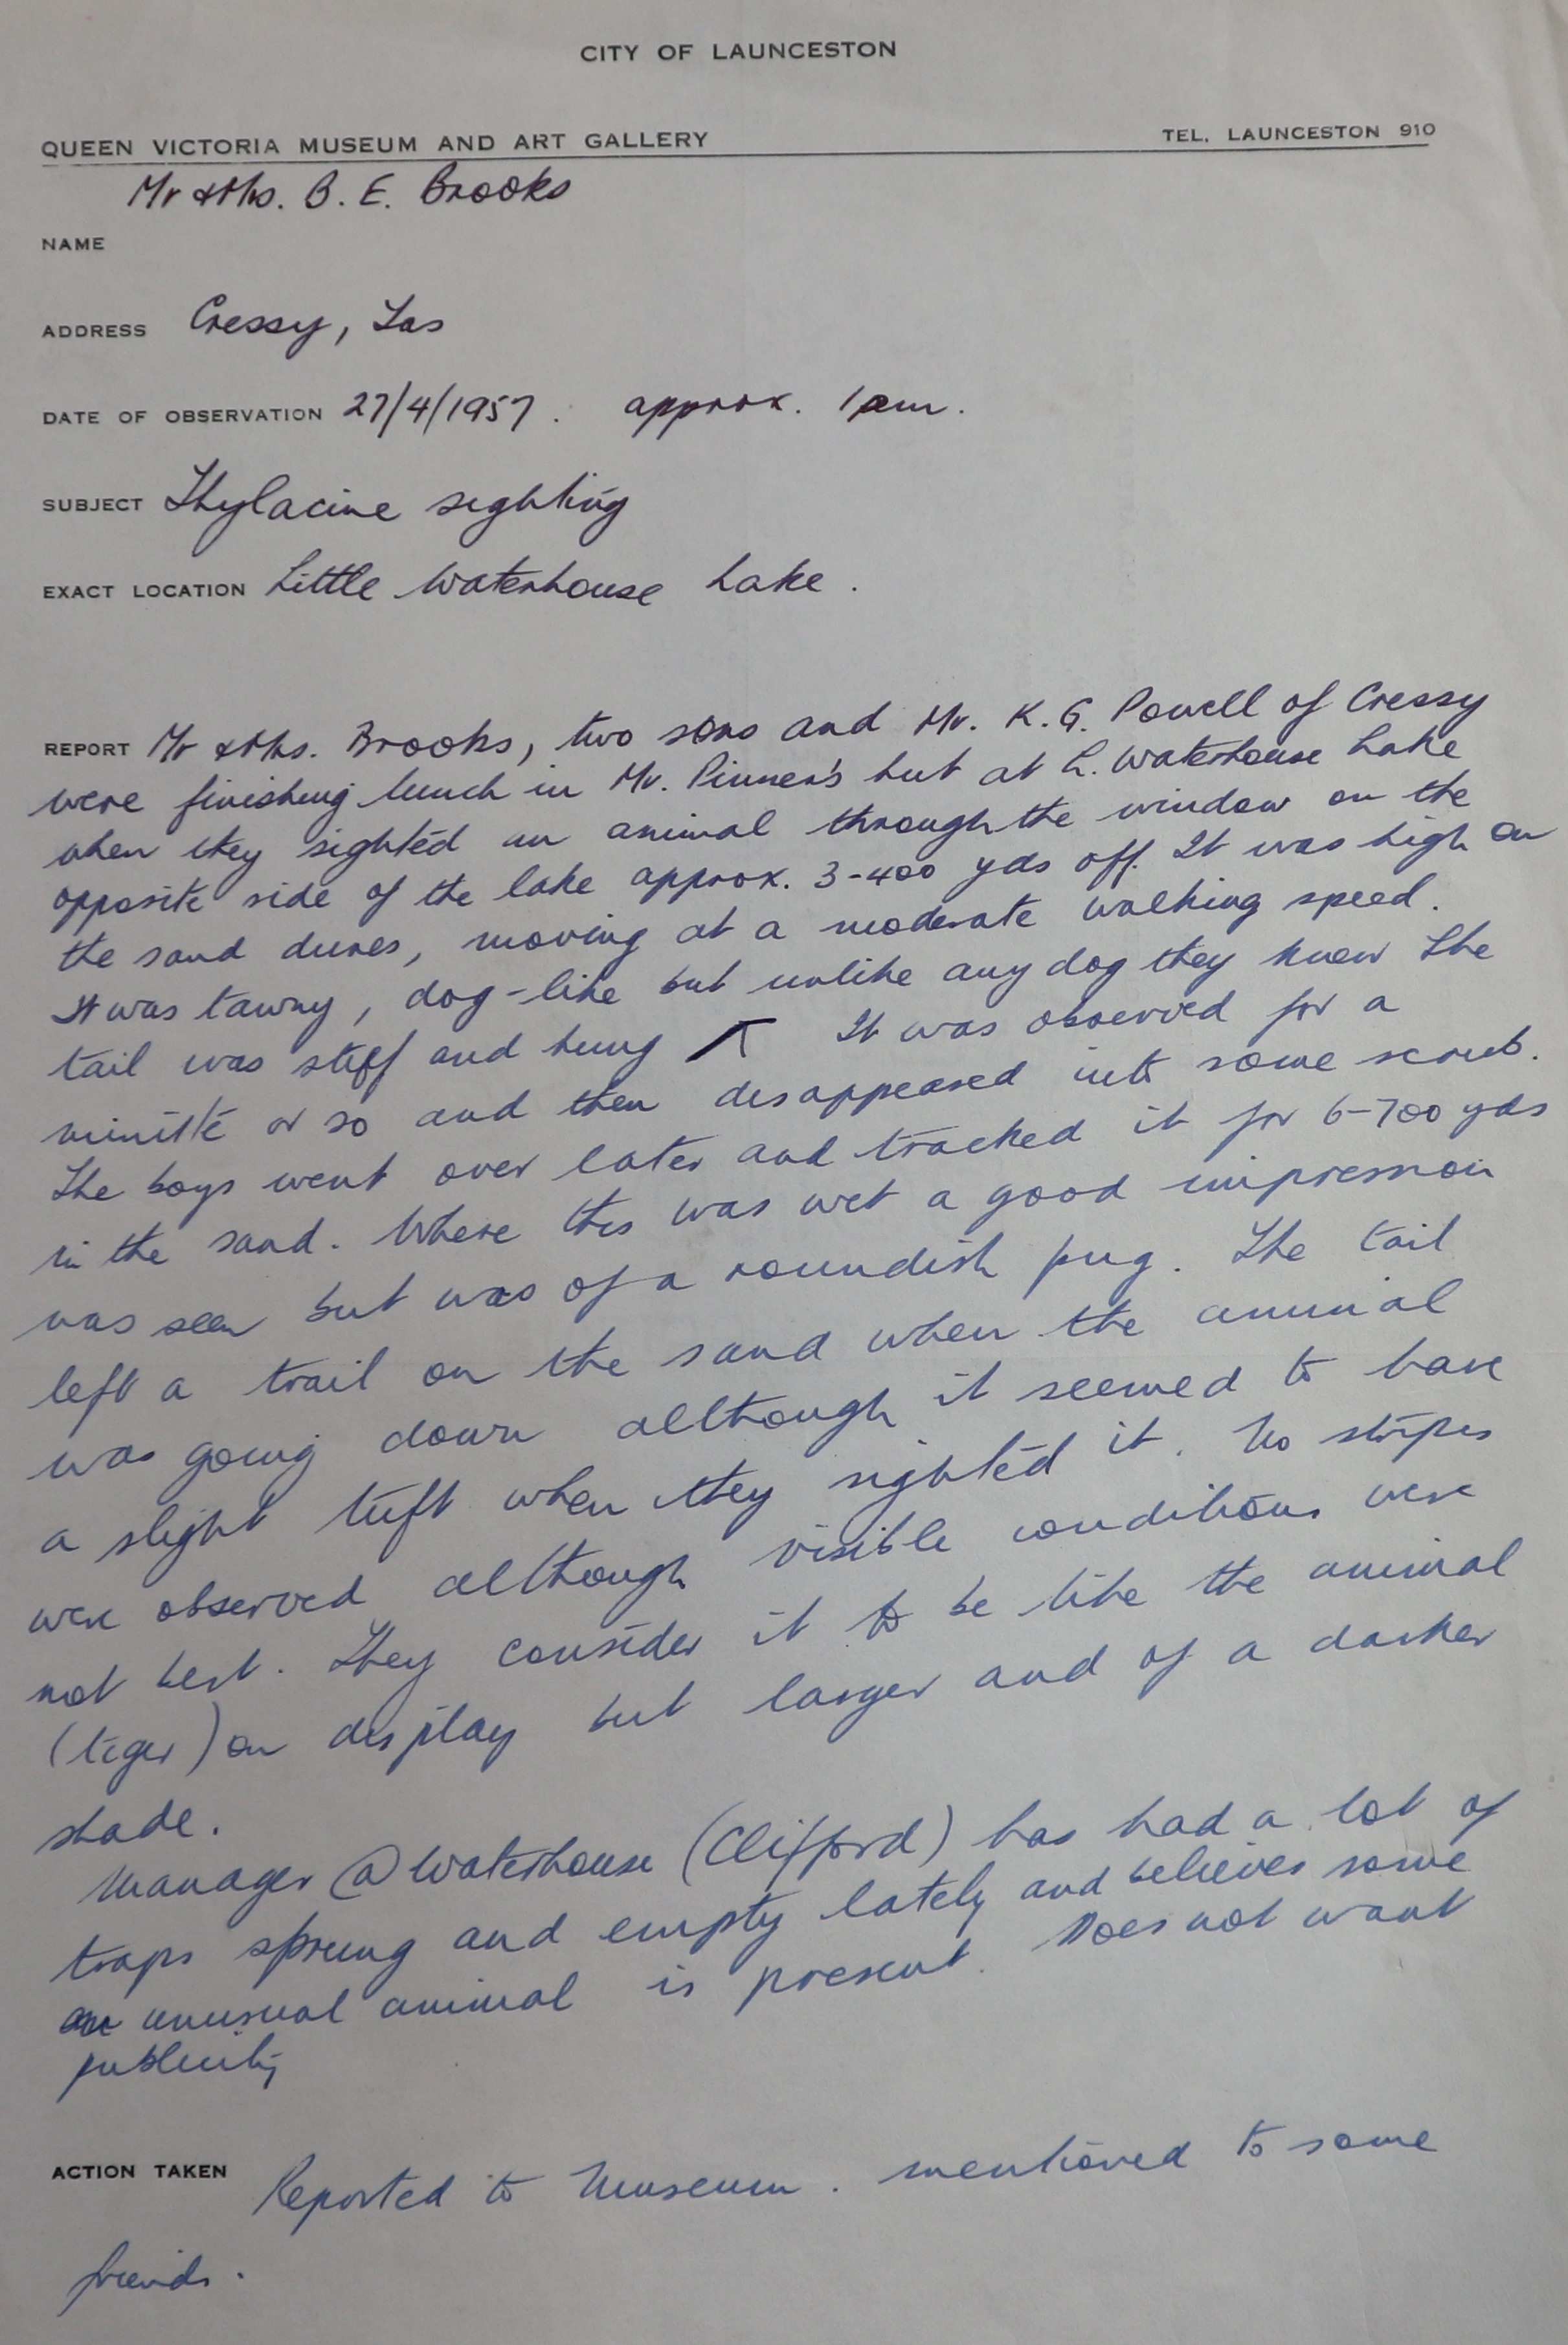 CITY OF LAUNCESTON
QUEEN VICTORIA MUSEUM AND ART GALLERY TEL. LAUNCESTON 910
Mr & Mrs. B. E. Brooks
NAME
ADDRESS Cressy, Tas
DATE OF OBSERVATION 27/4/1957. approx. 1pm.
SUBJECT Thylacine sighting
EXACT LOCATION Little Waterhouse Lake.
REPORT Mr & Mrs. Brooks, two sons and Mr. K. G. Powell of Cressy
were finishing lunch in Mr. Pinner's hut at L. Waterhouse Lake
when they sighted an animal through the window on the
opposite side of the lake approx. 3-400 yds off. It was high on
the sand dunes, moving at a moderate walking speed.
It was tawny, dog-like but unlike any dog they knew The
tail was stiff and hung It was observed for a
minute or so and then disappeared into some scrub.
The boys went over later and tracked it for 6-700 yds
in the sand. Where this was wet a good impression
was seen but was of a roundish pug. The tail
left a trail on the sand when the animal
was going down although it seemed to have
a slight tuft when they sighted it. No stripes
were observed although visible conditions were
not best. They consider it to be like the animal
(tiger) on display but larger and of a darker
shade.
Manager @ Waterhouse (Clifford) has had a lot of
traps sprung and empty lately and believes some
unusual animal is present. Does not want
publicity
ACTION TAKEN Reported to Museum. mentioned to some
friends.